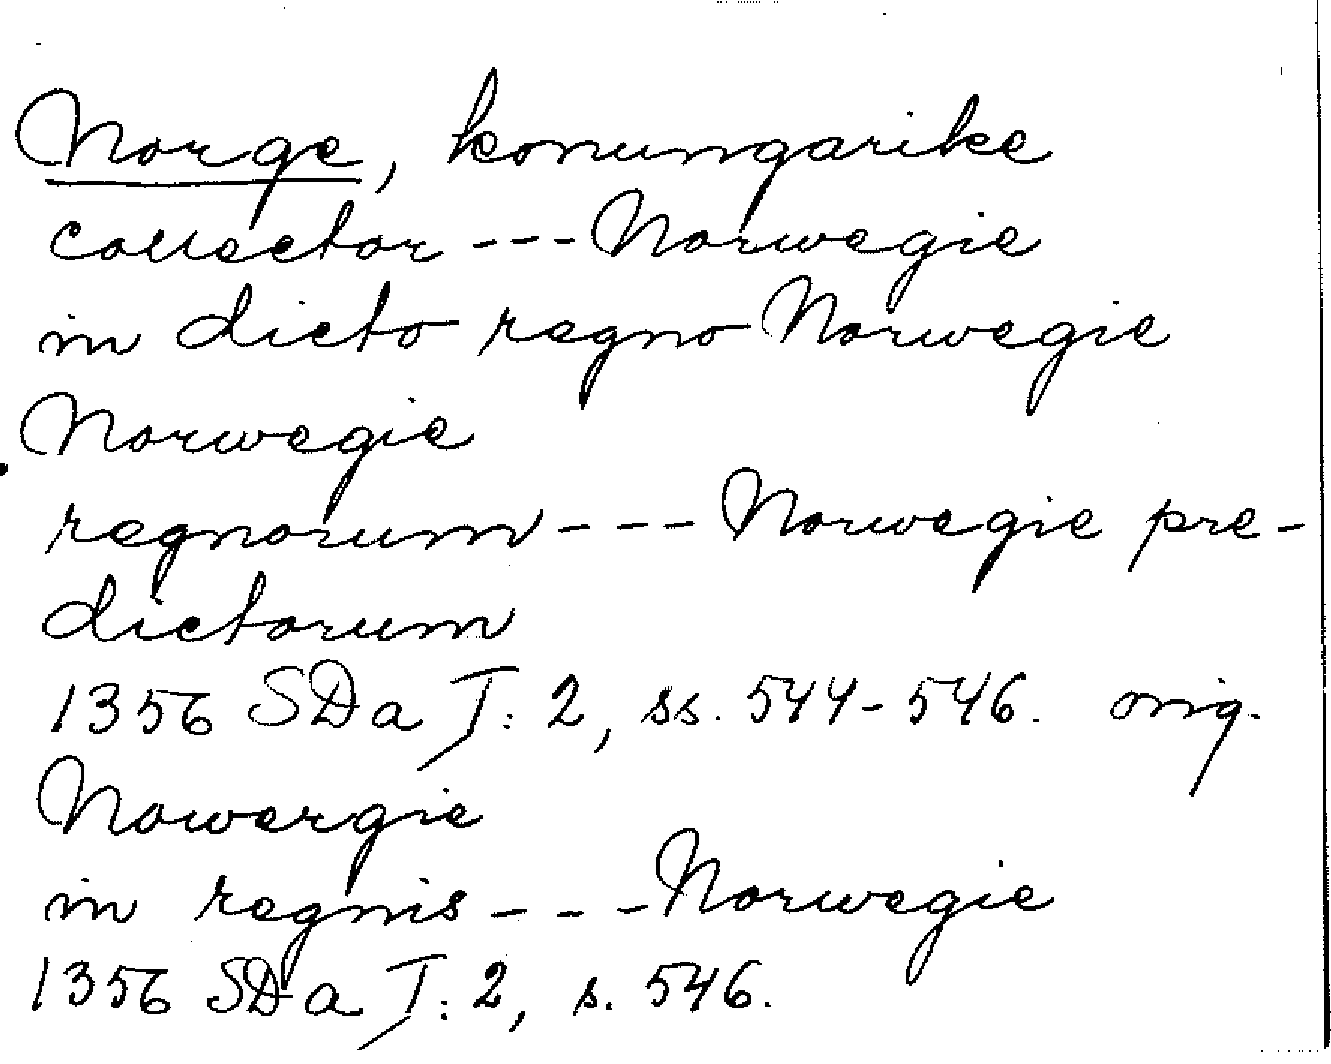 Norge, konungarike
collector --- Norwegie
in dicto regno Norwegie
Norwegie
regnorum --- Norwegie pre-
dictorum
1356 SDa I: 2, ss. 544-546. orig.
Nowergie
in regnis --- Norwegie
1356 SDa I: 2, s. 546.